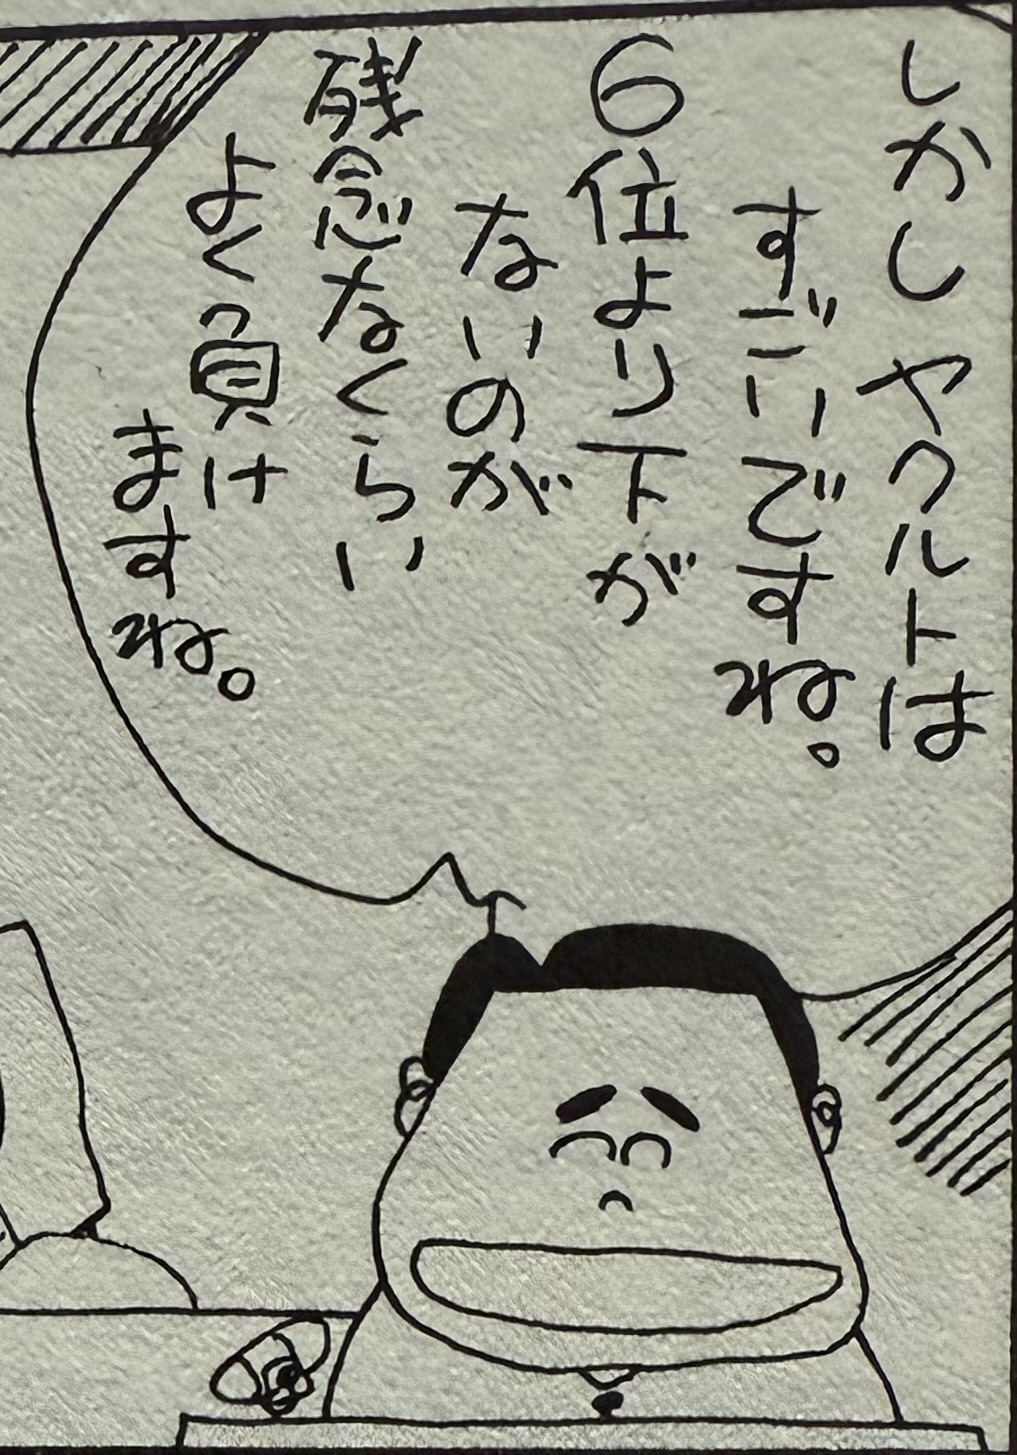 しかし ヤクルトは
すごいですね。
6位より下が
ないのが
残念なくらい
よく負け
ますね。